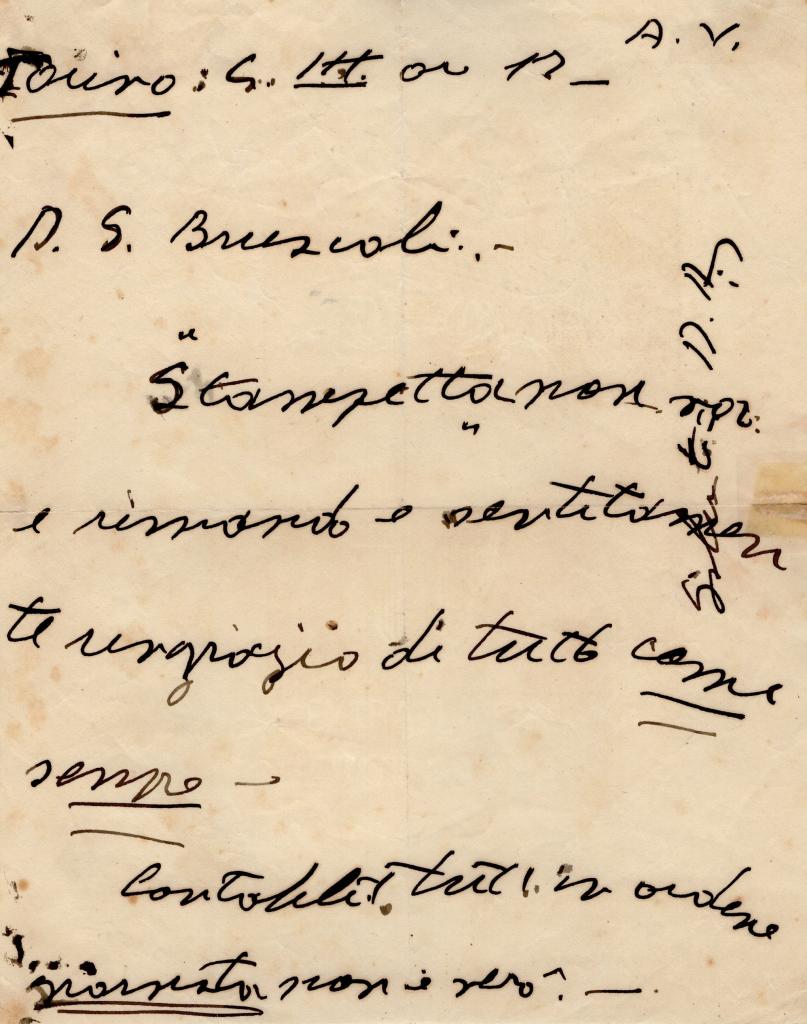 A. V.
Torino: S. III. or 12 –
D. G. Bruscoli:.-
"Stampetta" non
e rimando e sentitamen
te ringrazio di tutto come
sempre –
tutti in ordine
giornata non è vero?. –